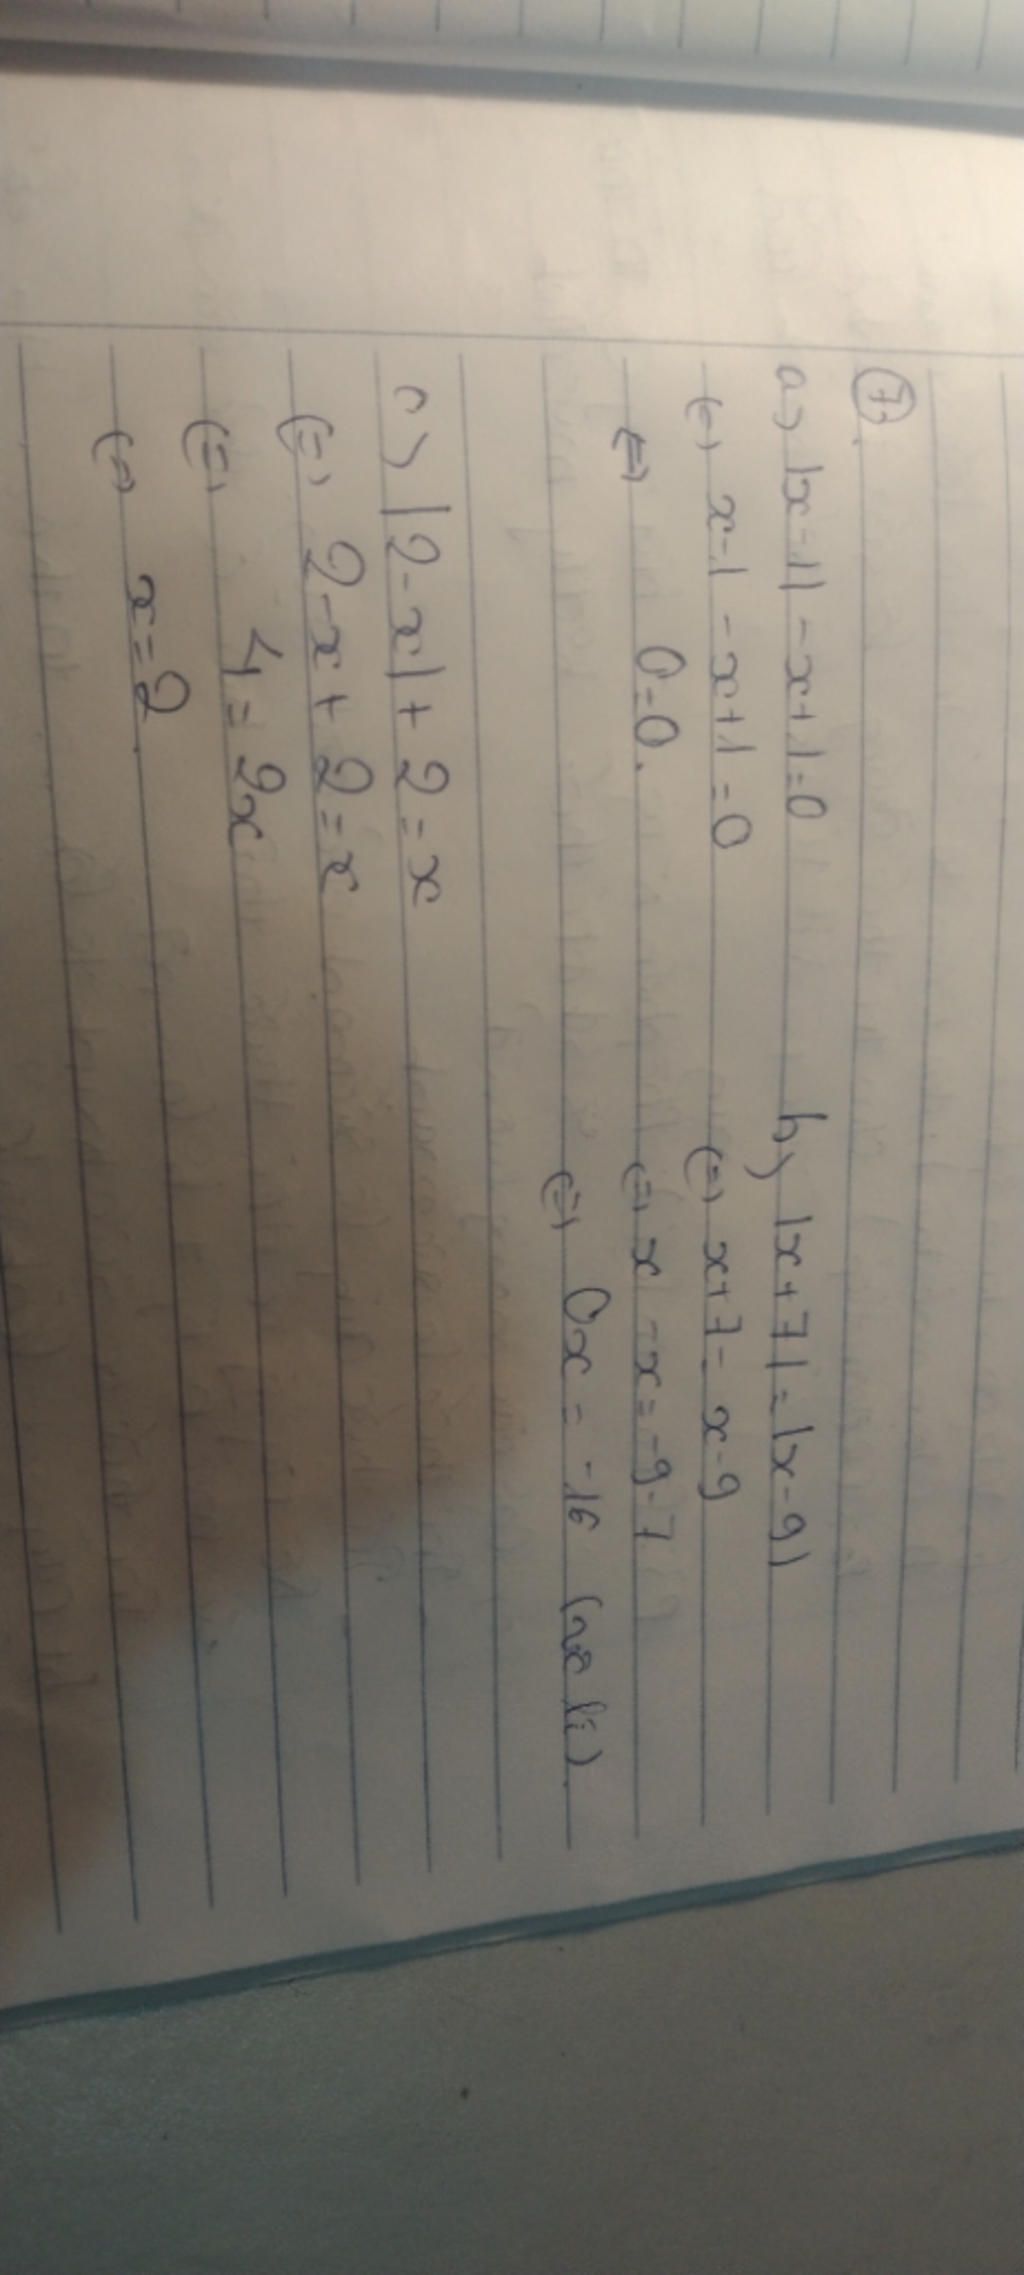 7.
a) |x-1| - x+1=0
(=) x-1 - x+1 = 0
(=) 0=0.
b) |x+7| = |x-9|
(=) x+7 = x-9
(=) x - x = -9-7
(=) 0x = -16
c) |2-x| + 2 = x
(=) 2-x + 2 = x
(=) 4 = 2x
(=) x = 2